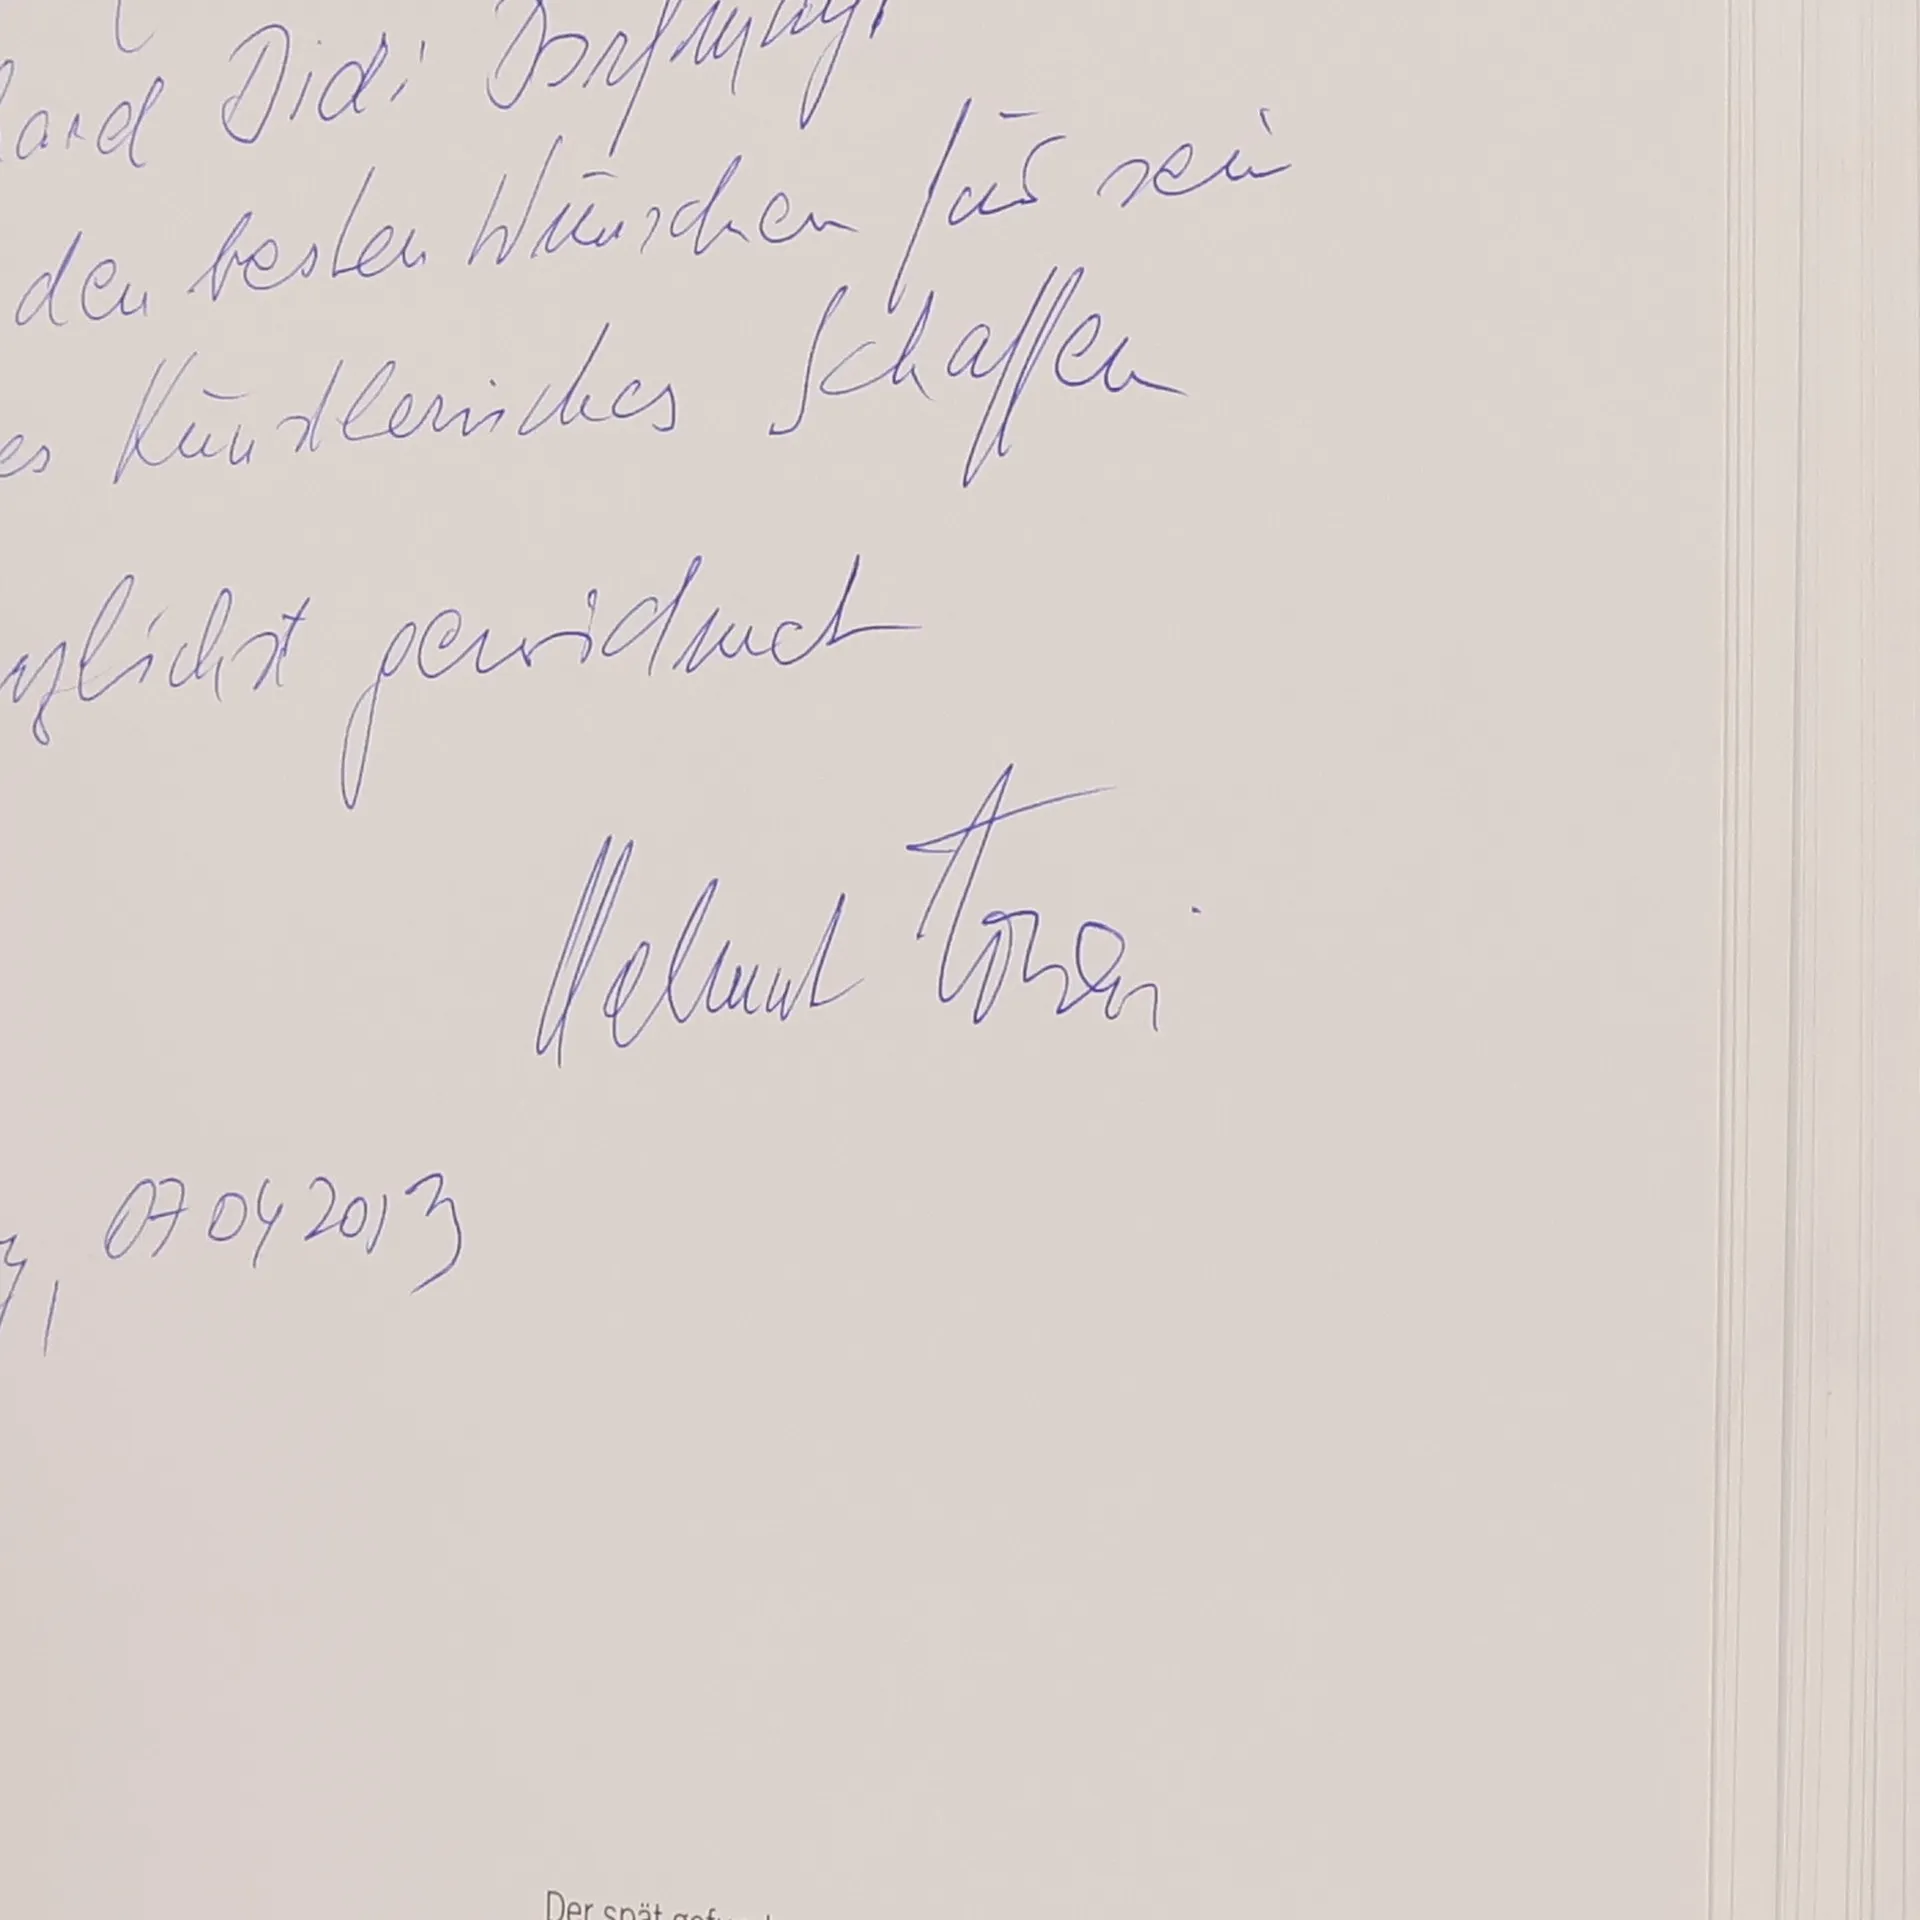 hard Didi Dorfmayr
den besten Wünschen für sein
es Künstlerisches Schaffen
rzlichst gewidmet
Helmut
07 04 2013
Der spät